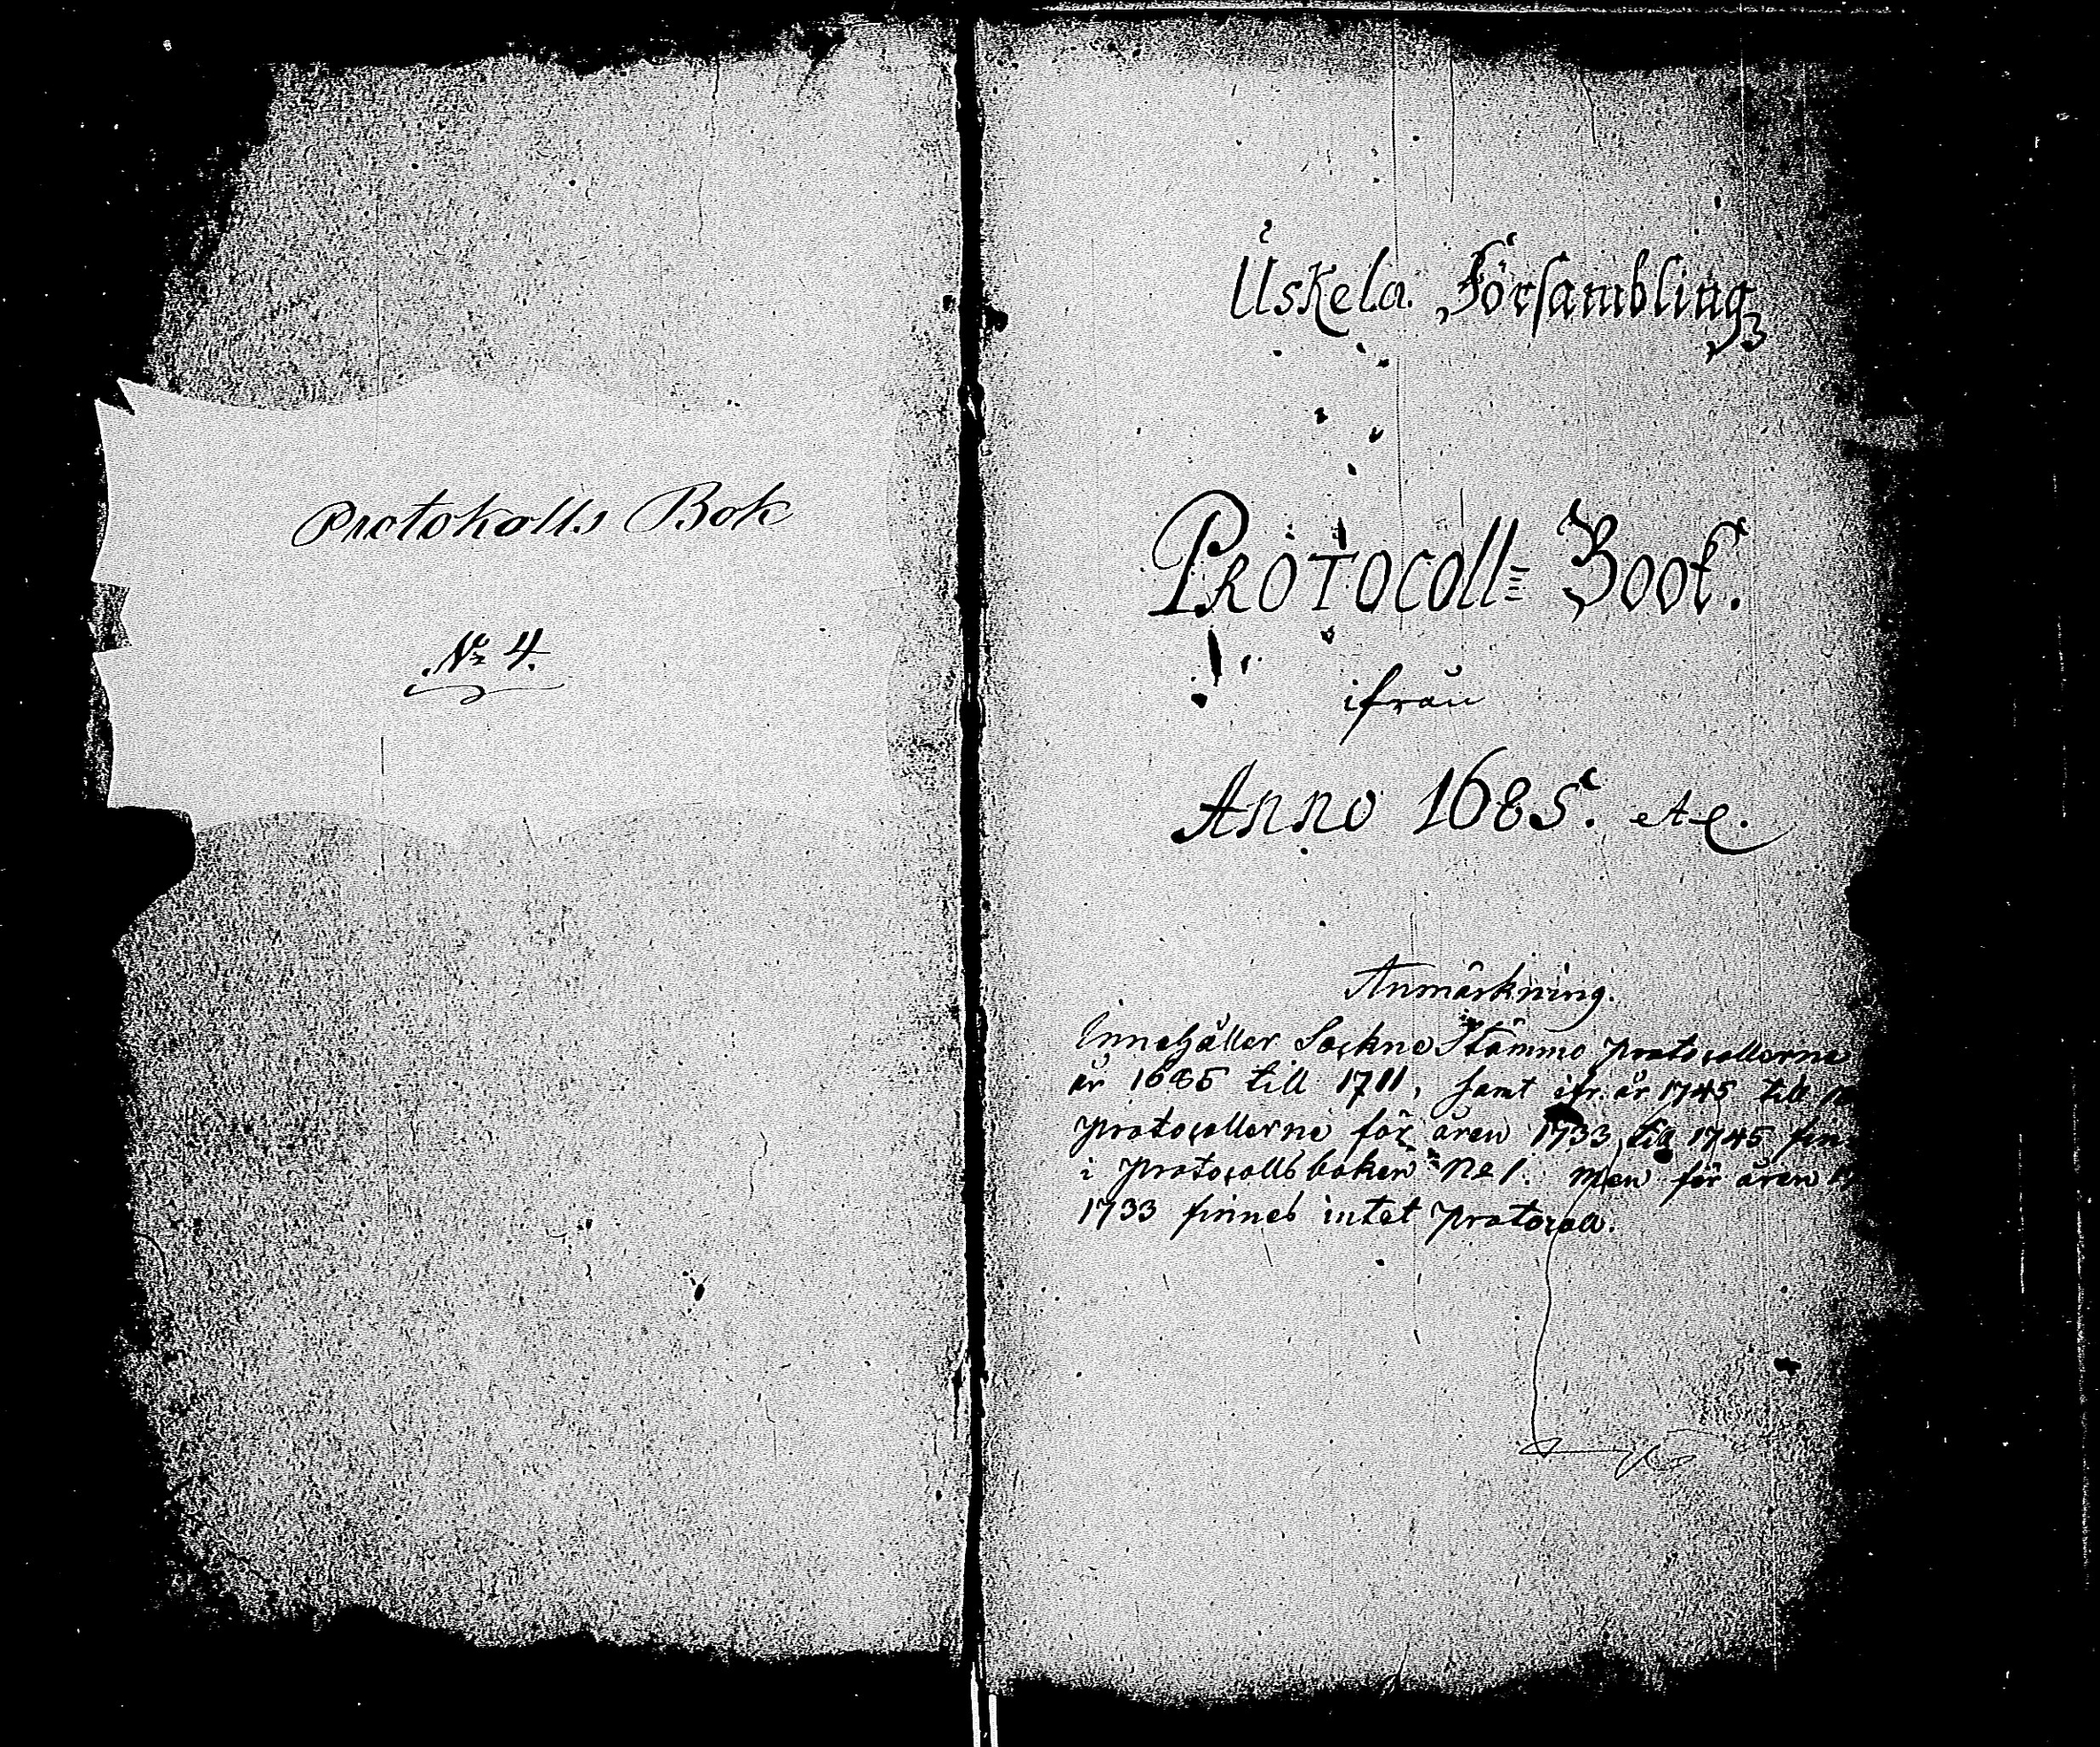 Protokolls Bok
No 4.
Uskela Församblings
PROTOCOLL= Book.
ifrån
Anno 1685. etc.
Anmärkning.
Innehåller Sockne Stämmo protocollerne
år 1685 till 1711, samt ifr. år 1745 till
protocollerne för åren 1733 till 1745 fin-
i protocollsboken No 1. Men för åren
1733 finnes intet protocoll.